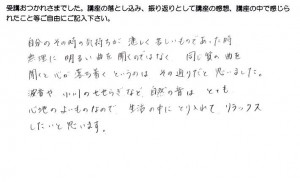 受講おつかれさまでした。講座の落とし込み、振り返りとして講座の感想、講座の中で感じら
れたこと等ご自由にご記入下さい。
自分のその時の気持ちが 悲しく 苦しいものであった時
無理に 明るい曲を聞くのではなく 同じ質の曲を
聞くと 心が落ち着く というのは その通りだと思いました。
波音や 小川のせせらぎなど 自然の音は とても
心地のよいものなので 生活の中に とり入れて リラックス
したいと思います。